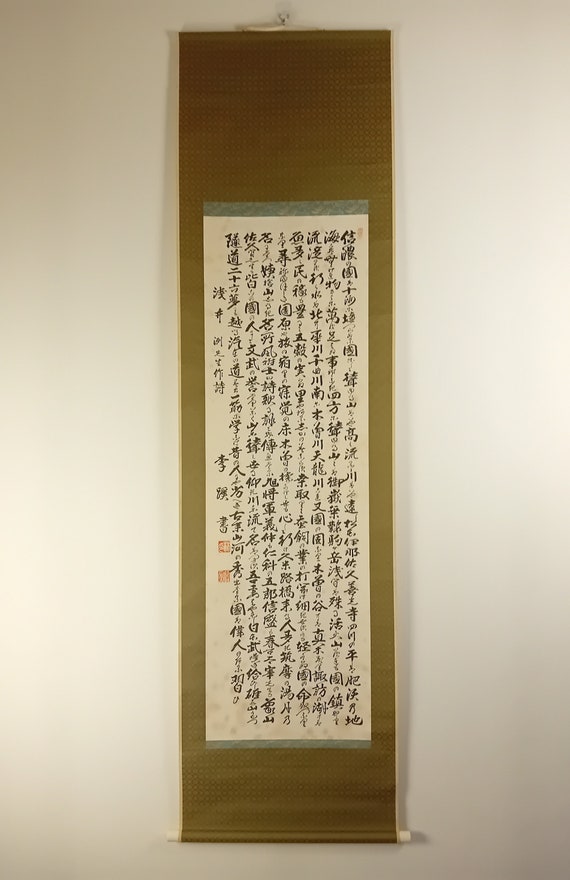 信濃の国は十州に境つらぬる国にして聳ゆる山はいや高く流るる川はいや遠し松本伊那佐久善光寺四つの平は肥沃の地
海こそなけれ物さわに万足らわぬ事ぞなき四方に聳ゆる山々は御嶽乗鞍駒ヶ岳浅間は殊に活火山いずれも国の鎮めなり
流れ淀まずゆく水は北に犀川千曲川南に木曽川天龍川これまた国の固めなり木曽の谷には真木茂り諏訪の湖には
魚多し民の稼ぎも豊かにて五穀の実らぬ里やあるしかのみならず桑取りて蚕飼の業の打ちひらけ細きよすがも軽からぬ国の命を繋ぐなり
尋ねまほしき園原や旅の宿りの寝覚の床木曽の棧かけし世も心して行け久米路橋来る人多き筑摩の湯月の
名にたつ姨捨山しるき名所と風雅士が詩歌に詠てぞ傳えたる旭将軍義仲も仁科の五郎信盛も春台太宰先生も象山
佐久間先生も皆此国の人にして文武の誉たぐいなく山と聳えて世に仰ぎ川と流れて名は尽ず吾妻はやとし日本武嘆き給いし碓氷山穿つ
隧道二十六夢にも越ゆる汽車の道みち一筋に学びなば昔の人にや劣るべき古来山河の秀でたる国は偉人のある習い
浅井洌先生作詩
李 蹊 書